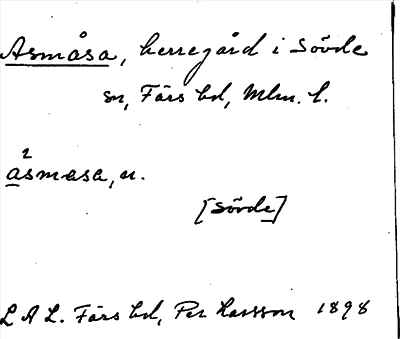 Asmåsa, herregård i Sövde
sn, Färs hd, Mlm. l.
2
åsmasa, n.
[Sövde]
L A L. Färs hd, Per Larsson 1898